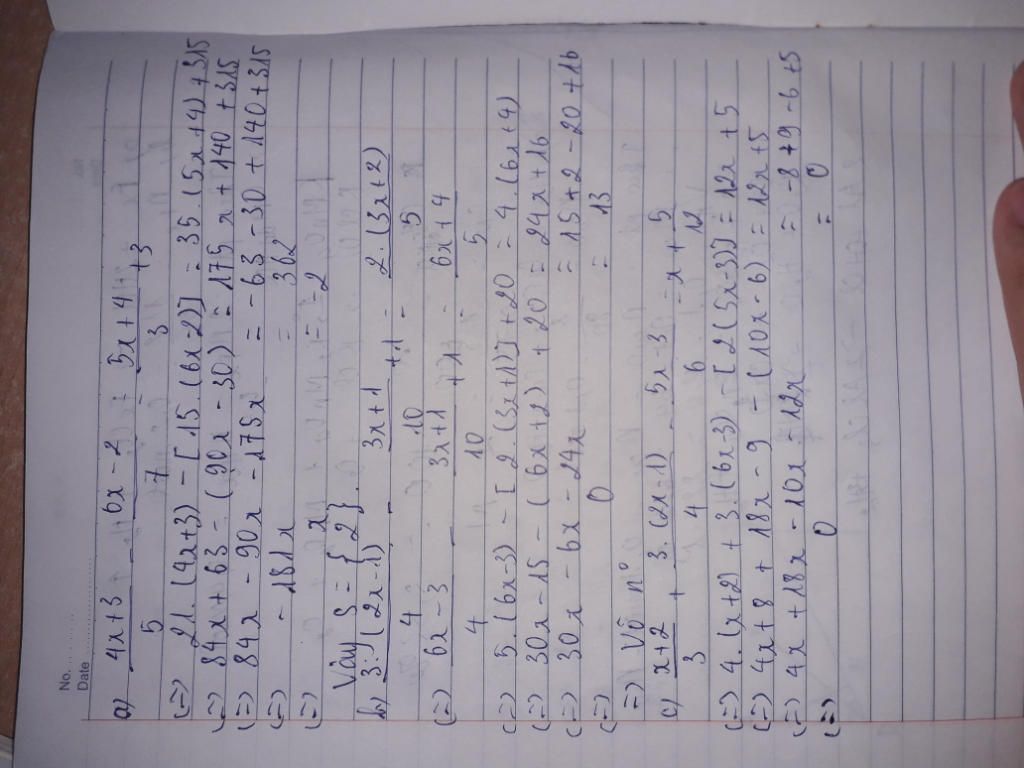 No. ............
Date ............
a) 4x+3/5 - 6x-2/7 = 5x+4/3 + 3
(=) 21.(4x+3) - [15.(6x-2)] = 35.(5x+4) + 315
(=) 84x + 63 - (90x - 30) = 175x + 140 + 315
(=) 84x - 90x - 175x = -63 - 30 + 140 + 315
(=) -181x = 362
(=) x = -2
Vậy S = { 2 }.
b) 3.(2x-1)/4 - 3x+1/10 + 1 = 2.(3x+2)/5
(=) 6x-3/4 - 3x+1/10 + 1 = 6x+4/5
(=) 5.(6x-3) - [2.(3x+1)] + 20 = 4.(6x+4)
(=) 30x - 15 - (6x+2) + 20 = 24x + 16
(=) 30x - 6x - 24x = 15 + 2 - 20 + 16
(=) 0 = 13
=) Vô nº
c) x+2/3 + 3.(2x-1)/4 - 5x-3/6 = x + 5/12
(=) 4.(x+2) + 3.(6x-3) - [2(5x-3)] = 12x + 5
(=) 4x+8 + 18x - 9 - (10x-6) = 12x + 5
(=) 4x + 18x - 10x - 12x = -8 + 9 - 6 + 5
(=) 0 = 0